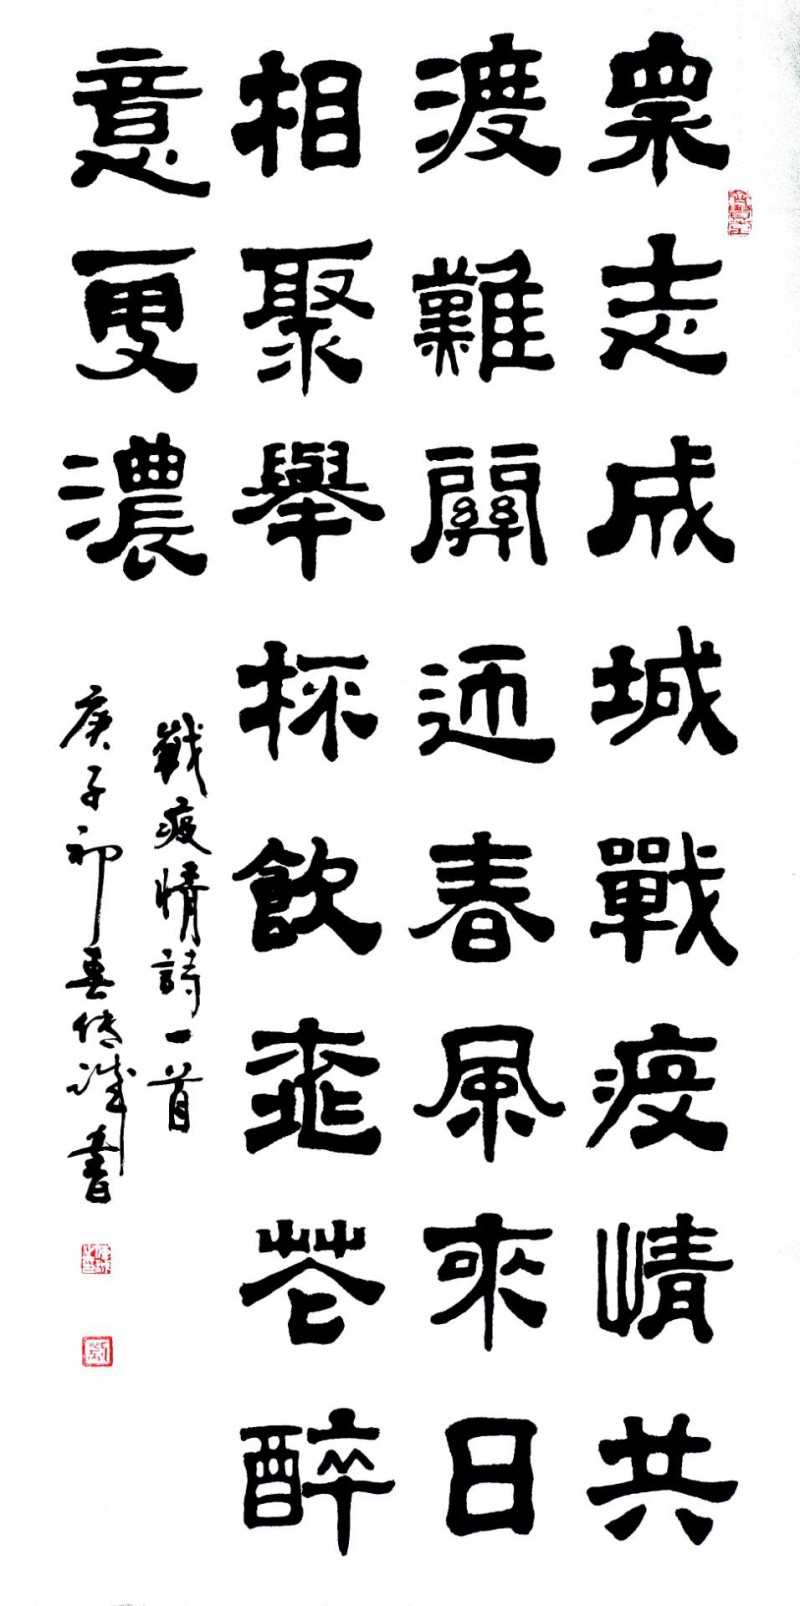 眾志成城戰疫情共
渡難關迎春風來日
相聚舉杯飲桃花醉
意更濃
戰疫情詩一首
庚子初春传誠書